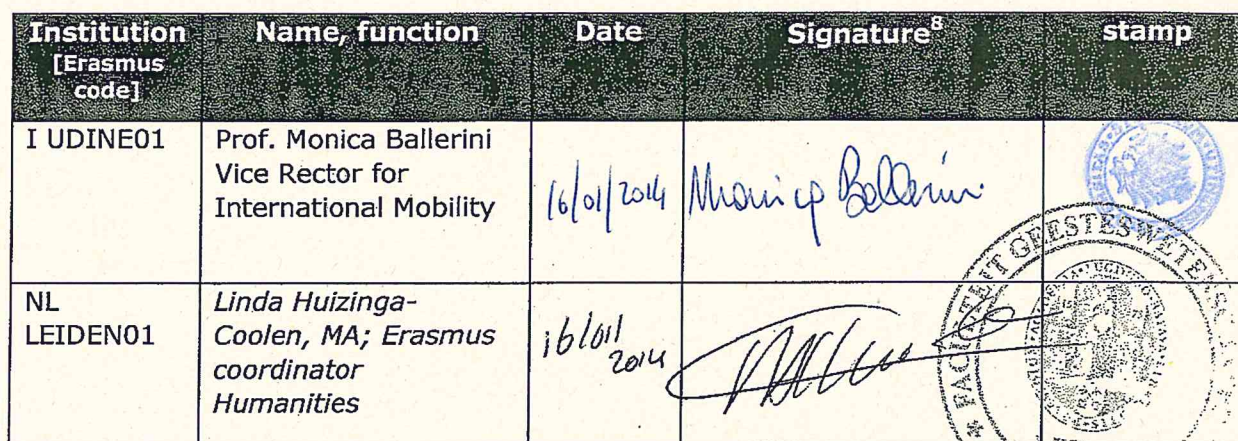 Institution Name, function Date Signature8 stamp
[Erasmus
code]
I UDINE01 Prof. Monica Ballerini
Vice Rector for
International Mobility
16/01/2014 Monica Ballerini
NL Linda Huizinga-
LEIDEN01 Coolen, MA; Erasmus
coordinator
Humanities
16/01/
2014
FACULTEIT GEESTESWETENSC